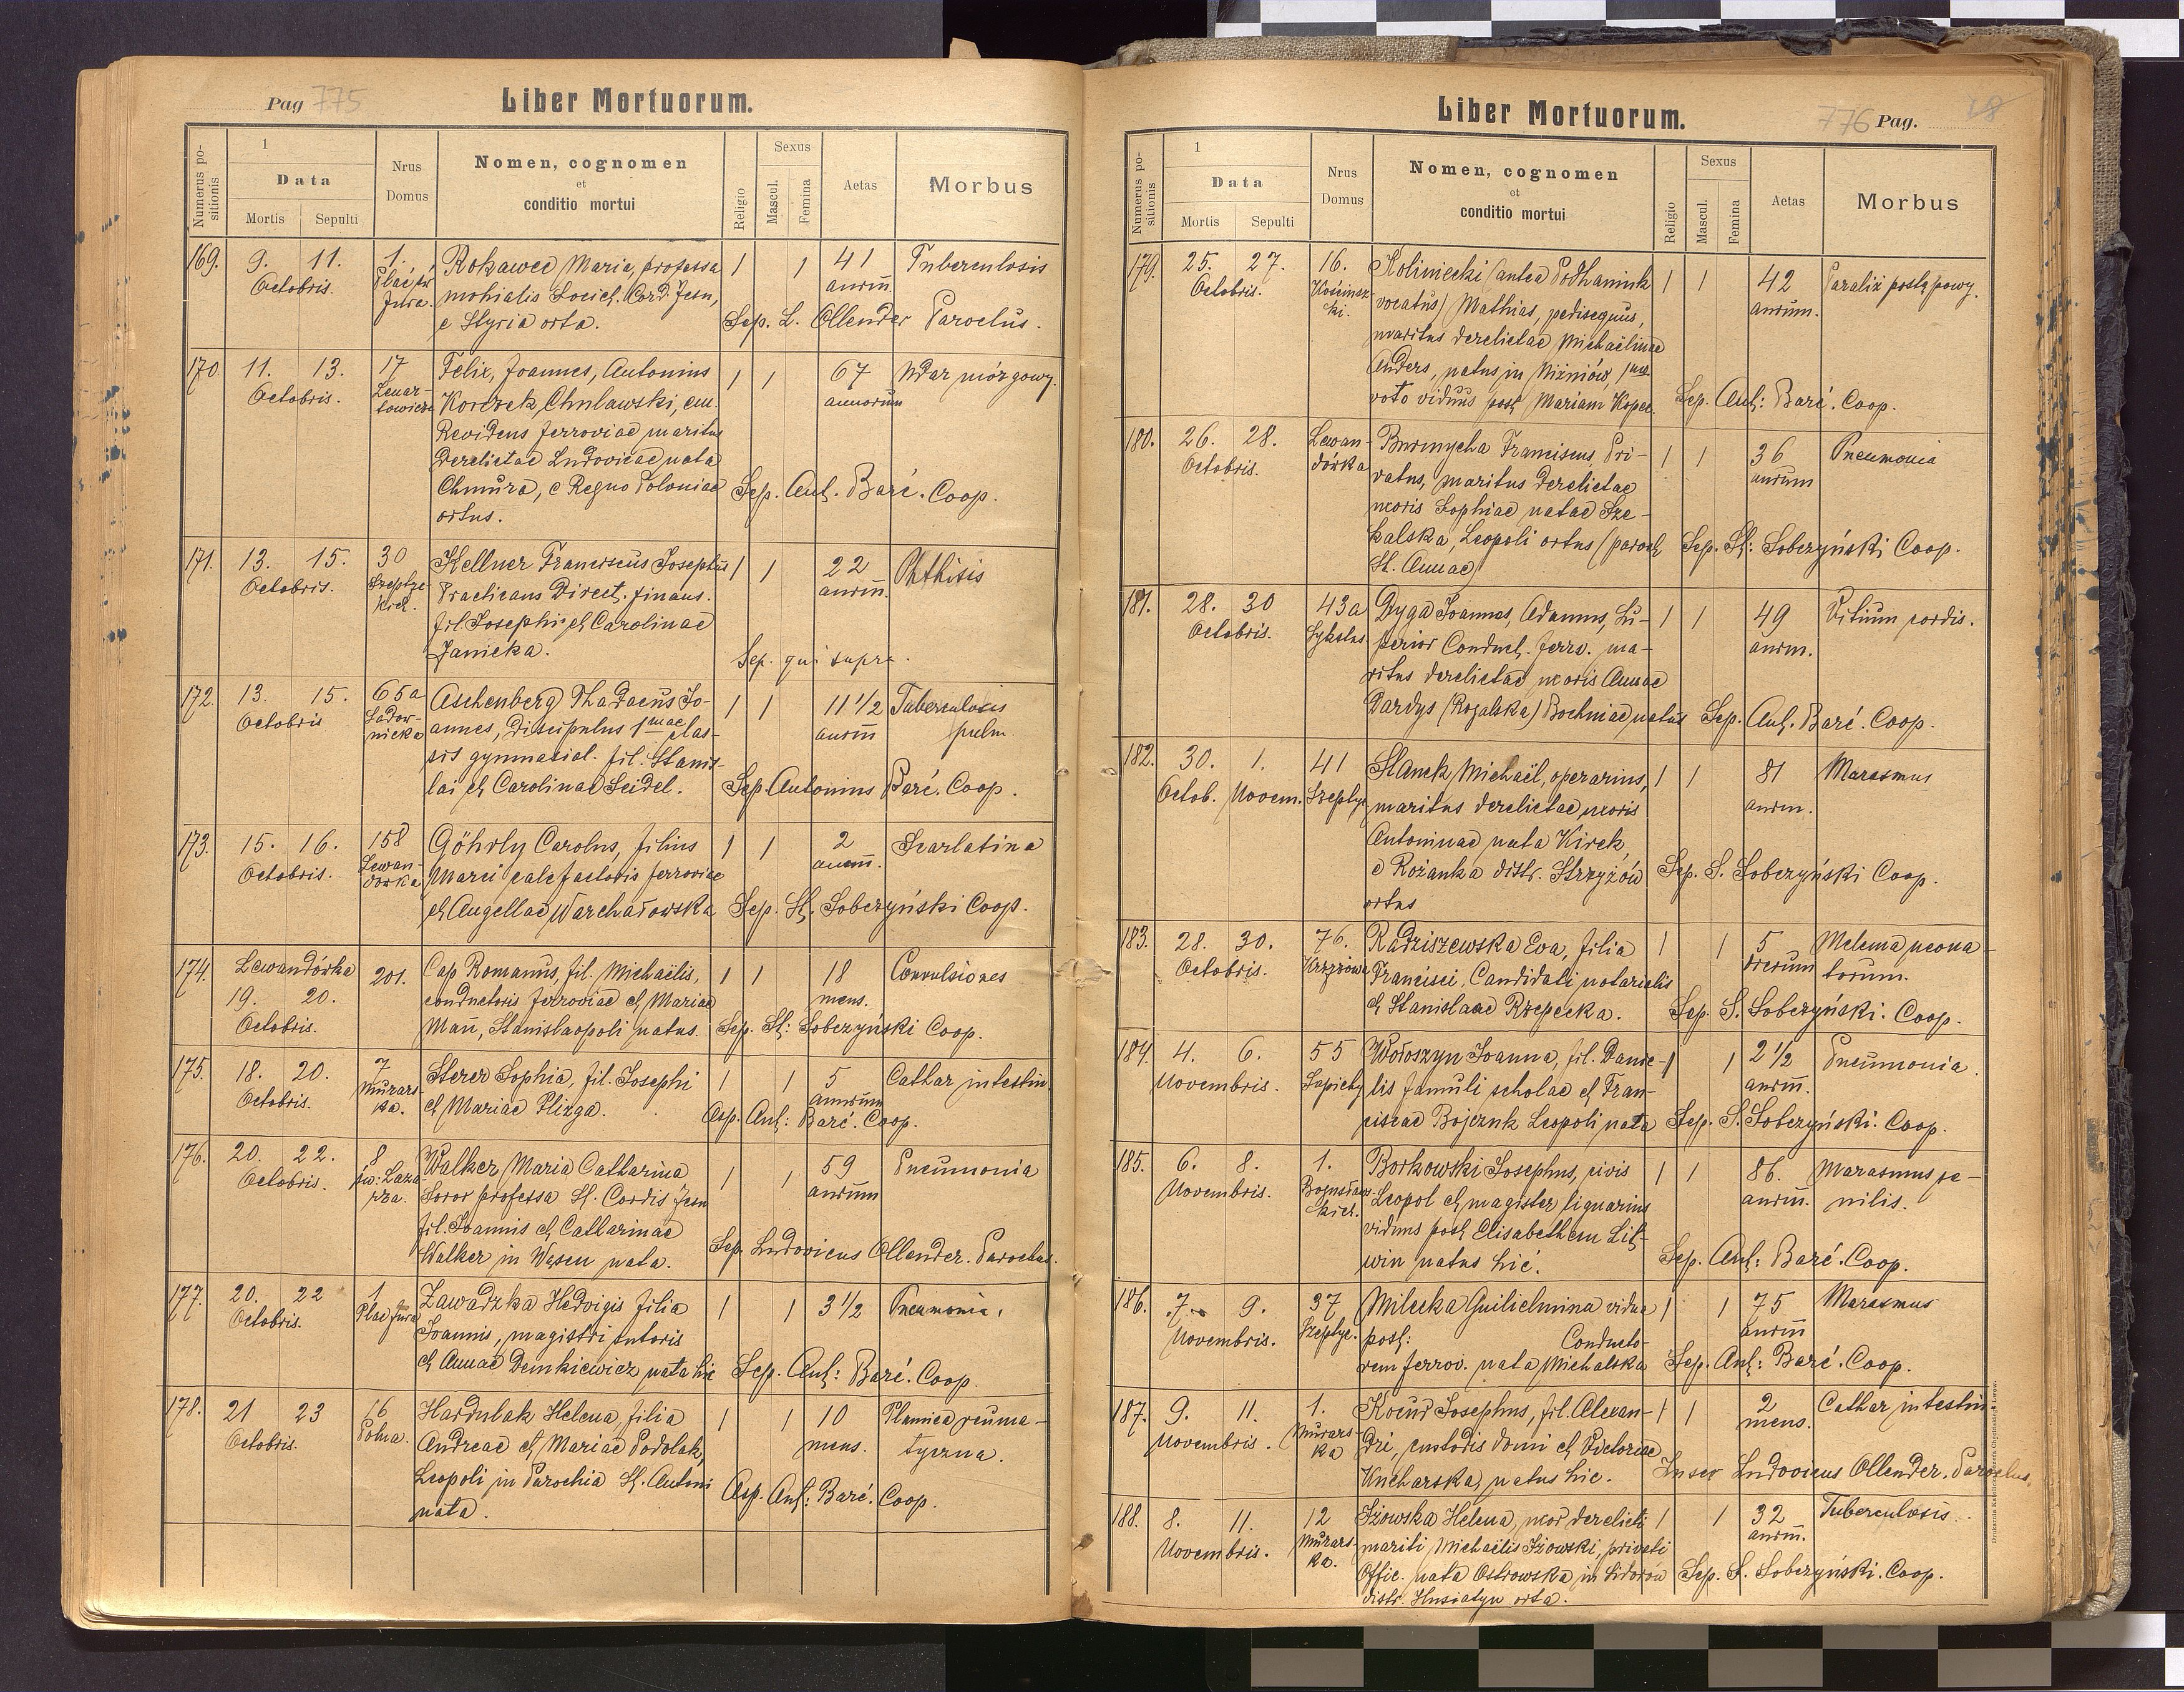 Pag 775
Liber Mortuorum.
Numerus positionis
1
Data
Mortis Sepulti
Nrus Domus
Nomen, cognomen
et
conditio mortui
Religio
Sexus
Mascul. Femina
Aetas
Morbus
169. 9. 11. 1. Rokawec Maria, professa 1 1 41 Tuberculosis
Octobris. Plac św. monialis Societ. Cord. Jesu, annorum
Jura. e Styria orta. Sep. L. Ollender Parochus.
170. 11. 13. 17 Felix, Joannes, Antonius 1 1 67 Udar mózgowy.
Octobris. Lenar- Korczek Chulawski, em. annorum
towicza Revidens ferroviae maritus
derelictae Ludovicae nata
Chmura, e Regno Poloniae Sep. Ant. Baré. Coop.
ortus.
171. 13. 15. 30 Kellner Franciscus Josephus 1 1 22 Phthisis
Octobris. Szeptyc- Practicans Direct. finans. annrm.
kich. fil. Josephi et Carolinae
Janicka. Sep. qui supra.
172. 13. 15. 65a Aschenberg Thadaeus Jo- 1 1 11 1/2 Tuberculosis
Octobris Sadow- annes, discipulus 1mae clas- annrm pulm.
nicka sis gymnasial. fil. Stanis-
lai et Carolinae Seidel. Sep Antonius Baré. Coop.
173. 15. 16. 158 Göhrly Carolus, filius 1 1 2 Scarlatina
Octobris. Lewan- Marci calefactoris ferroviae annrm.
dówka et Angellae Warchałowska Sep. St. Sobczyński Coop.
174. Lewandówka 201. Cap Romanus, fil. Michaëlis, 1 1 18 Convulsiones
19. 20. conductoris ferroviae et Mariae mens.
Octobris. Mań, Stanislaopoli natus. Sep. St: Sobczyński Coop.
175. 18. 20. 7 Sterer Sophia, fil. Josephi 1 1 5 Cathar intestin.
Octobris. Murars- et Mariae Plizga. annrum
ka. Asp. Ant: Baré. Coop.
176. 20. 22. 8 Walker Maria Catharina 1 1 59 Pneumonia
Octobris. św: Łaza- Soror professa St. Cordis Jesu annrum
rza. fil. Joannis et Catharinae
Walker in Wysen nata. Sep. Ludovicus Ollender. Parochus.
177. 20. 22 1 Zawadzka Hedvigis filia 1 1 3 1/2 Pneumonia.
Octobris. Plac Jura Joannis, magistri sutoris
et Annae Demkiewicz nata hic Sep. Ant: Baré. Coop.
178. 21 23 16 Hardulak Helena, filia 1 1 10 Płonica reuma-
Octobris. Polna. Andreae et Mariae Podolak, mens. tyczna.
Leopoli in Parochia St. Antoni Asp. Ant: Baré. Coop.
nata.
Liber Mortuorum.
776 Pag.
Numerus positionis
1
Data
Mortis Sepulti
Nrus Domus
Nomen, cognomen
et
conditio mortui
Religio
Sexus
Mascul. Femina
Aetas
Morbus
179. 25. 27. 16. Koliniecki (antea Podhaniuk 1 1 42 Paraliż postępowy.
Octobris. vocatus) Mathias, pedisequus, annrum.
ki. maritus derelictae Michaëlinae
Anders, natus in Niżniów, 1mo
voto viduus post Mariam Kopec. Sep. Ant: Baré. Coop.
180. 26. 28. Lewan- Burmycha Franciscus, Pri- 1 1 36 Pneumonia
Octobris. dówka vatus, maritus derelictae annrum
uxoris Sophiae natae Sze-
kalska, Leopoli ortus (paroch Sep. St: Sobczyński Coop.
St. Annae)
181. 28. 30 43a Dyga Joannes, Adamus, Su- 1 1 49 Vitium cordis.
Octobris. Sykstus. perior Conduct. ferro. ma- annrm.
ritus derelictae uxoris Annae
Dardys (Rogalska) Bochniae natus Sep. Ant. Baré. Coop.
182. 30. 1. 41 Stanek Michaël, operarius, 1 1 81 Marasmus
Octob. Novem. Szeptyc. maritus derelictae uxoris annrm.
Antoninae nata Kirek,
e Rożanka distr. Strzyżów Sep. S. Sobczyński Coop.
ortus
183. 28. 30. 76. Radziszewska Eva, filia 1 1 5 Melena neona-
Octobris. Krzyżowa Francisci, Candidati notarialis dierum torum.
et Stanislaae Rzepecka. Sep. S. Sobczyński. Coop.
184. 4. 6. 55 Wołoszyn Joanna, fil. Danie- 1 1 2 1/2 Pneumonia.
Novembris. Sapiehy lis famuli scholae et Fran- annrm.
ciscae Bojczuk Leopoli nata Sep. S. Sobczyński. Coop.
185. 6. 8. 1. Borkowski Josephus, civis 1 1 86. Marasmus se-
Novembris. Bogusław- Leopol et magister lignarius annrm. nilis.
skich. viduus post Elisabetham Lit-
win natus hic. Sep. Ant: Baré. Coop.
186. 7. 9. 37 Milecka Guilielmina vidua 1 1 75 Marasmus
Novembris. Szeptyc. post: Conducto- annrm
rem ferrov. nata Michalska Sep. Ant: Baré. Coop.
187. 9. 11. 1. Kocur Josephus, fil. Alexan- 1 1 2 Cathar intestin
Novembris. Murars- dri, custodis domi et Victoriae mens.
ka Kucharska, natus hic. Ludovicus Ollender. Parochus.
188. 8. 11. 12 Iżowska Helena, uxor derelicti 1 1 32 Tuberculosis.
Novembris. Murars- mariti Michaëlis Iżowski, privati annrm.
ka. Offic. nata Ostrowska in Sidorow Sep. S. Sobczyński. Coop.
distr. Husiatyn orta.